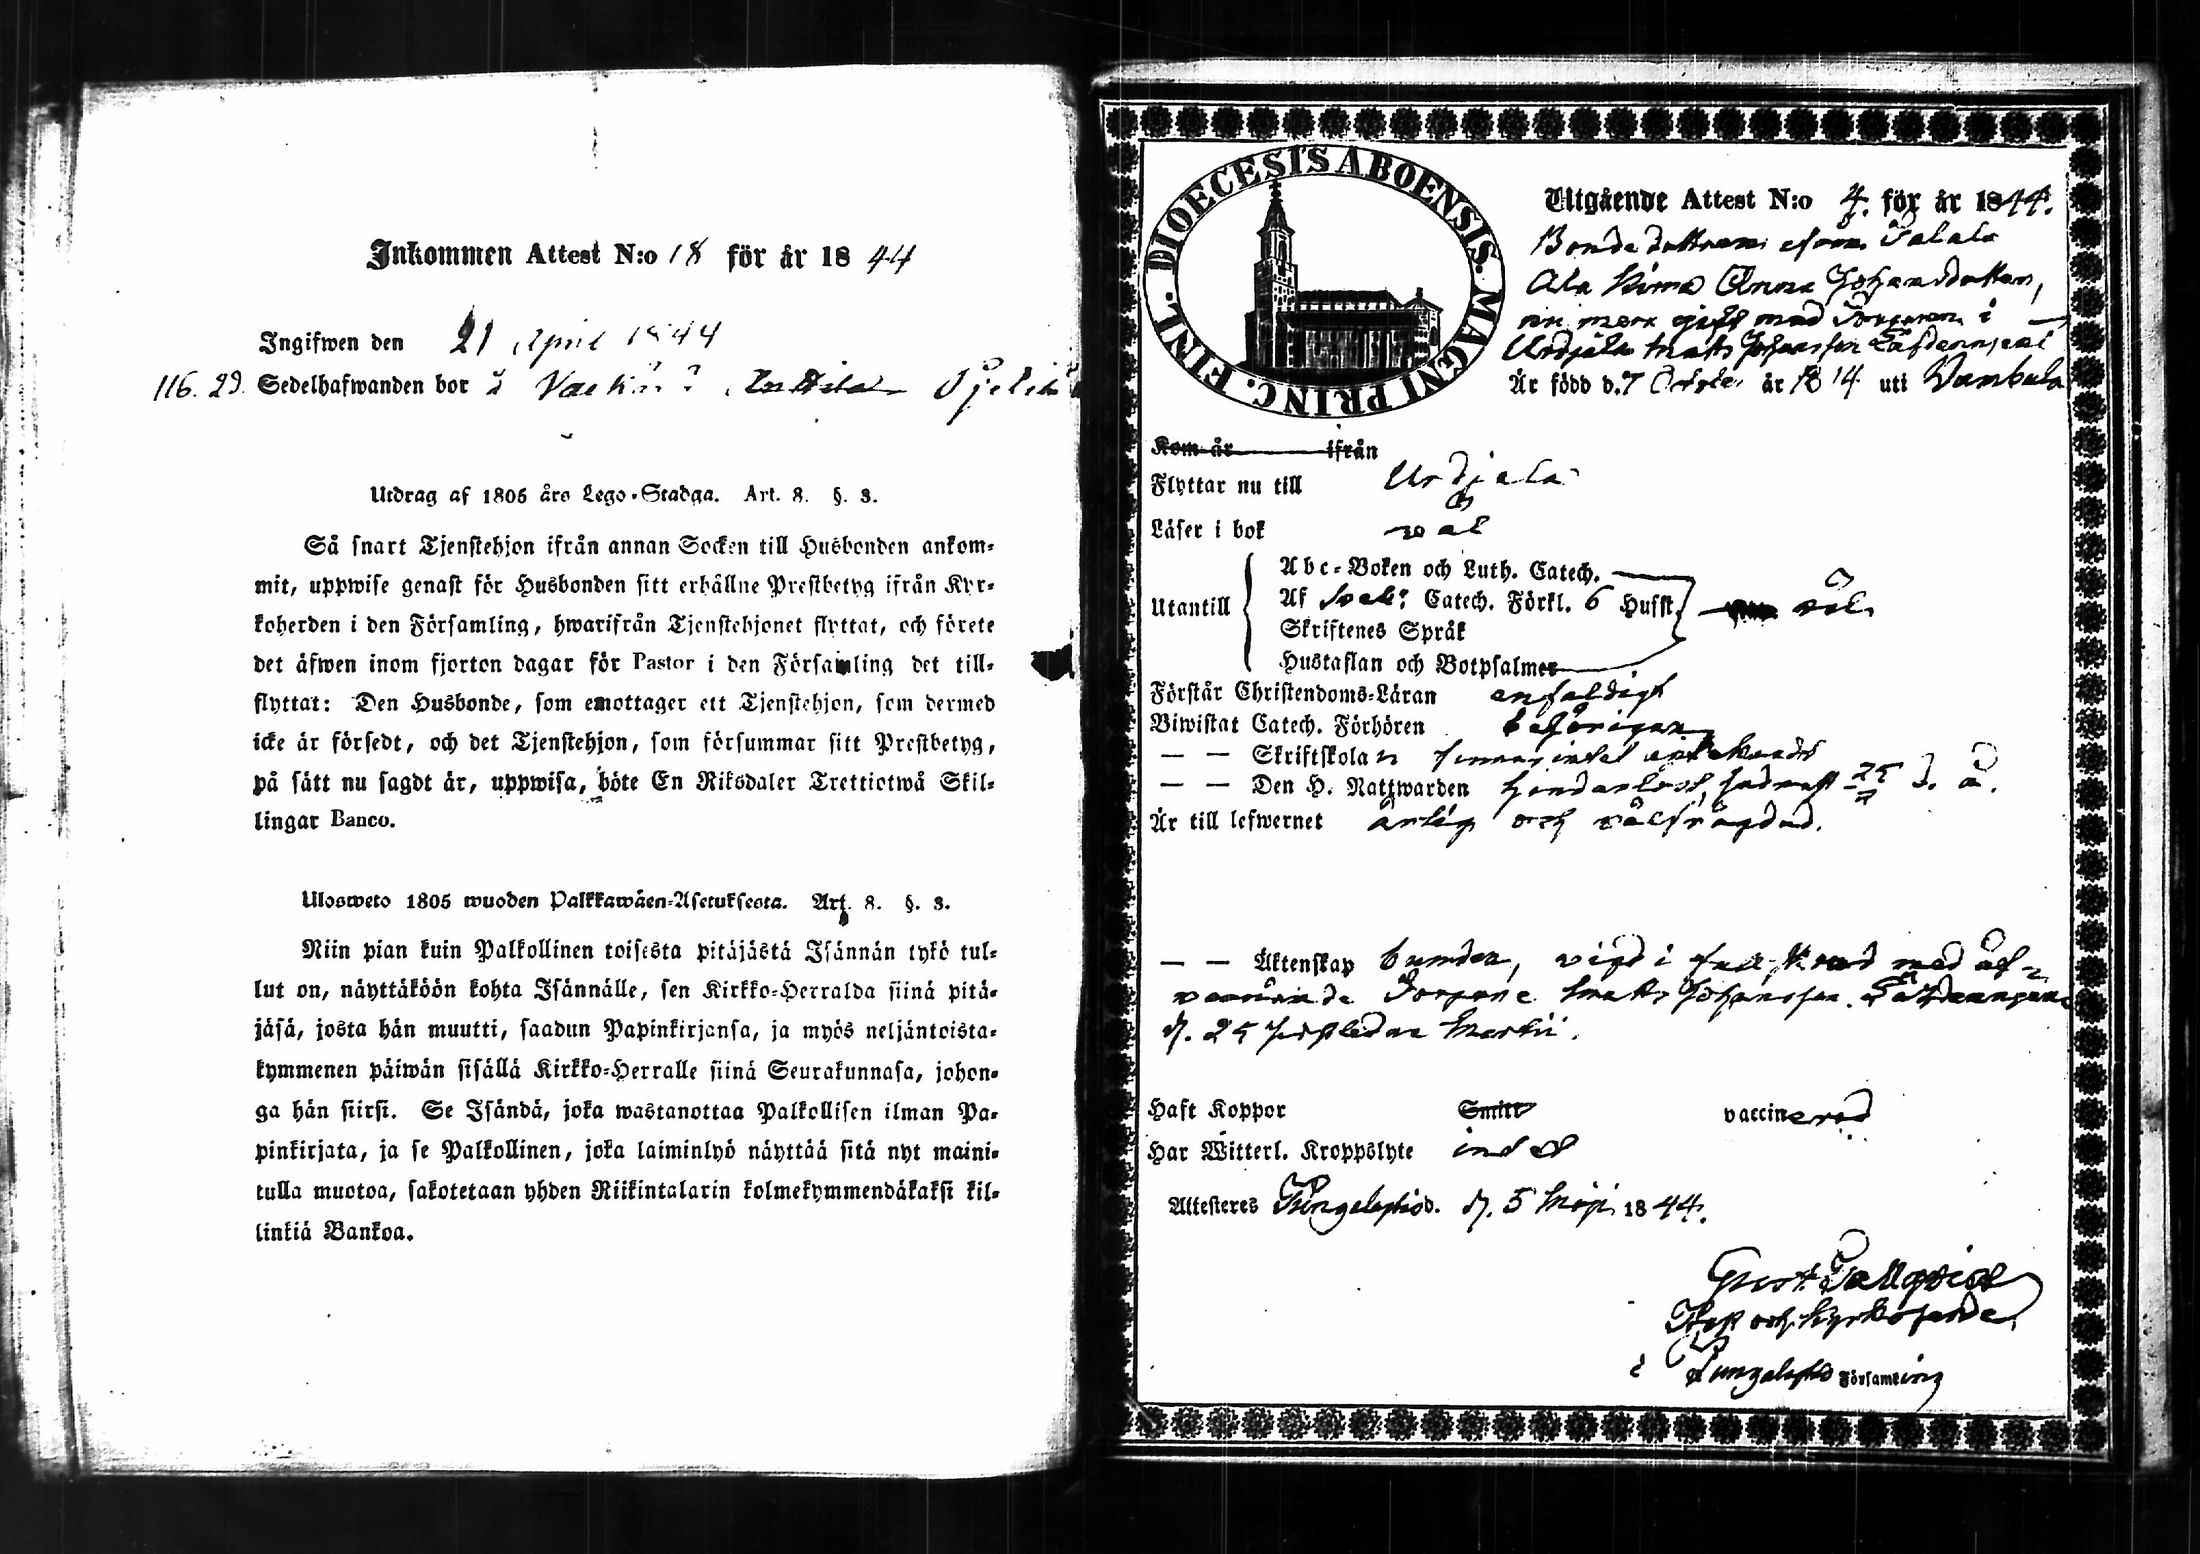 Inkommen Attest N:o 18 för år 1844
Ingifwen den 21 April 1844
116. 29. Sedelhafwanden bor i
Utdrag af 1805 års Lego-Stadga. Art. 8. §. 3.
Så snart Tjenstehjon ifrån annan Socken till Husbonden ankom-
mit, uppwise genast för Husbonden sitt erhållne Prestbetyg ifrån Kyr-
koherden i den Församling, hwarifrån Tjenstehjonet flyttat, och förete
det äfwen inom fjorton dagar för Pastor i den Församling det till-
flyttat: Den Husbonde, som emottager ett Tjenstehjon, som dermed
icke är försedt, och det Tjenstehjon, som försummar sitt Prestbetyg,
på sätt nu sagdt är, uppwisa, böte En Riksdaler Trettiotwå Skil-
lingar Banco.
Ulosweto 1805 wuoden Palkkawäen-Asetuksesta. Art. 8. §. 3.
Niin pian kuin Palkollinen toisesta pitäjästä Isännän tykö tul-
lut on, näyttäköön kohta Isännälle, sen Kirkko-Herralda siinä pitä-
jäsä, josta hän muutti, saadun Papinkirjansa, ja myös neljäntoista-
kymmenen päiwän sisällä Kirkko-Herralle siinä Seurakunnasa, johon-
ga hän siirsi. Se Isändä, joka wastanottaa Palkollisen ilman Pa-
pinkirjata, ja se Palkollinen, joka laiminlyö näyttää sitä nyt maini-
tulla muotoa, sakotetaan yhden Riikintalarin kolmekymmendäkaksi kil-
linkiä Bankoa.
DIOECESIS ABOENSIS. MAGNI PRINC. FINL.
Utgående Attest N:o 4. för år 1844.
Bonde dottren ifrån
Ala Anna Johansdotter,
gift med i
Urdjala Matts Johansson
Är född d. 7 Octobr år 1814 uti
Kom år ifrån
Flyttar nu till Urdjala
Läser i bok wäl
Utantill
Abc-Boken och Luth. Catech.
Af Sveb: Catech. Förkl. 6 Husst. wäl
Skriftenes Språk
Hustaflan och Botpsalmer
Förstår Christendoms-Läran enfaldigt
Biwistat Catech. Förhören behörigen
— — Skriftskolan finnes intet antecknadt
— — Den H. Nattwarden hinderlöst, sednast d. å.
Är till lefwernet ärlig och wälfrägdad.
— — Äktenskap bunden, vigd i med
Matts Johansson
d. 25 Martii.
Haft Koppor Smitt vaccinerad
Har Witterl. Kroppslyte intet
Attesteres Pungalaitio d. 5 Maji 1844.
Gust. Tallqvist
och Kyrkoherde
i Pungalaitio Församling